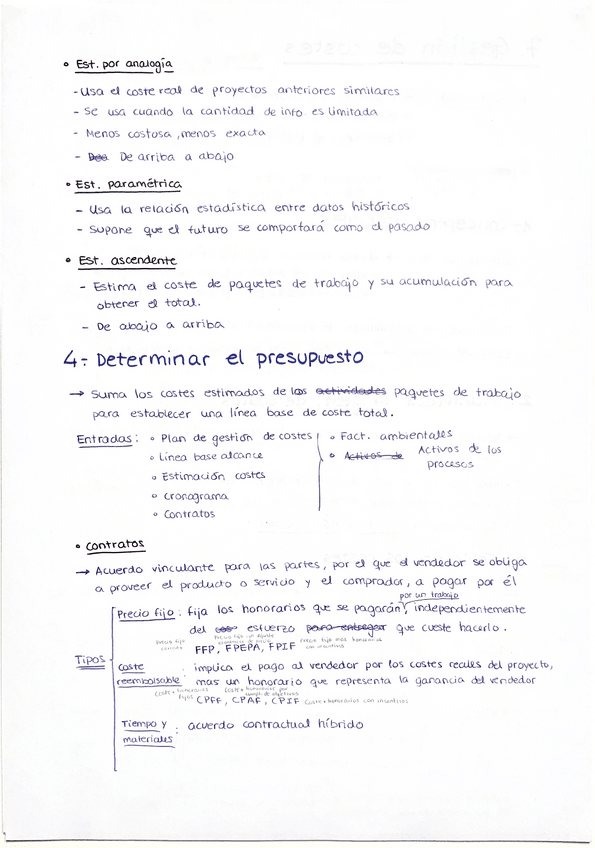 • Est. por analogía
- Usa el coste real de proyectos anteriores similares
- Se usa cuando la cantidad de info es limitada
- Menos costosa, menos exacta
- De arriba a abajo
• Est. paramétrica
- Usa la relación estadística entre datos históricos
- Supone que el futuro se comportará como el pasado
• Est. ascendente
- Estima el coste de paquetes de trabajo y su acumulación para
obtener el total.
- De abajo a arriba
4.- Determinar el presupuesto
→ Suma los costes estimados de los actividades paquetes de trabajo
para establecer una línea base de coste total.
Entradas: • Plan de gestión de costes
• Línea base alcance
• Estimación costes
• Cronograma
• Contratos
• Fact. ambientales
• Activos de Activos de los
procesos
• Contratos
→ Acuerdo vinculante para las partes, por el que el vendedor se obliga
a proveer el producto o servicio y el comprador, a pagar por él
Tipos
por un trabajo
Precio fijo: fija los honorarios que se pagarán, independientemente
del esfuerzo para entregar que cueste hacerlo.
Precio fijo
FFP, FPEPA, FPIF
Coste reembolsable: implica el pago al vendedor por los costes reales del proyecto,
mas un honorario que representa la garancia del vendedor
Coste + honorarios fijos
CPFF, CPAF, CPIF Coste + honorarios con incentivos
Tiempo y materiales: acuerdo contractual híbrido